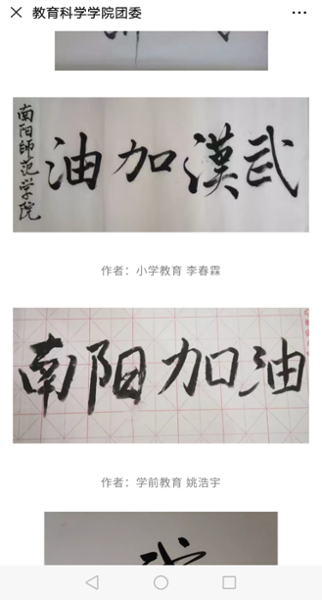 教育科学学院团委
武漢加油
南阳師范学院
作者：小学教育 李春霖
南阳加油
作者：学前教育 姚浩宇